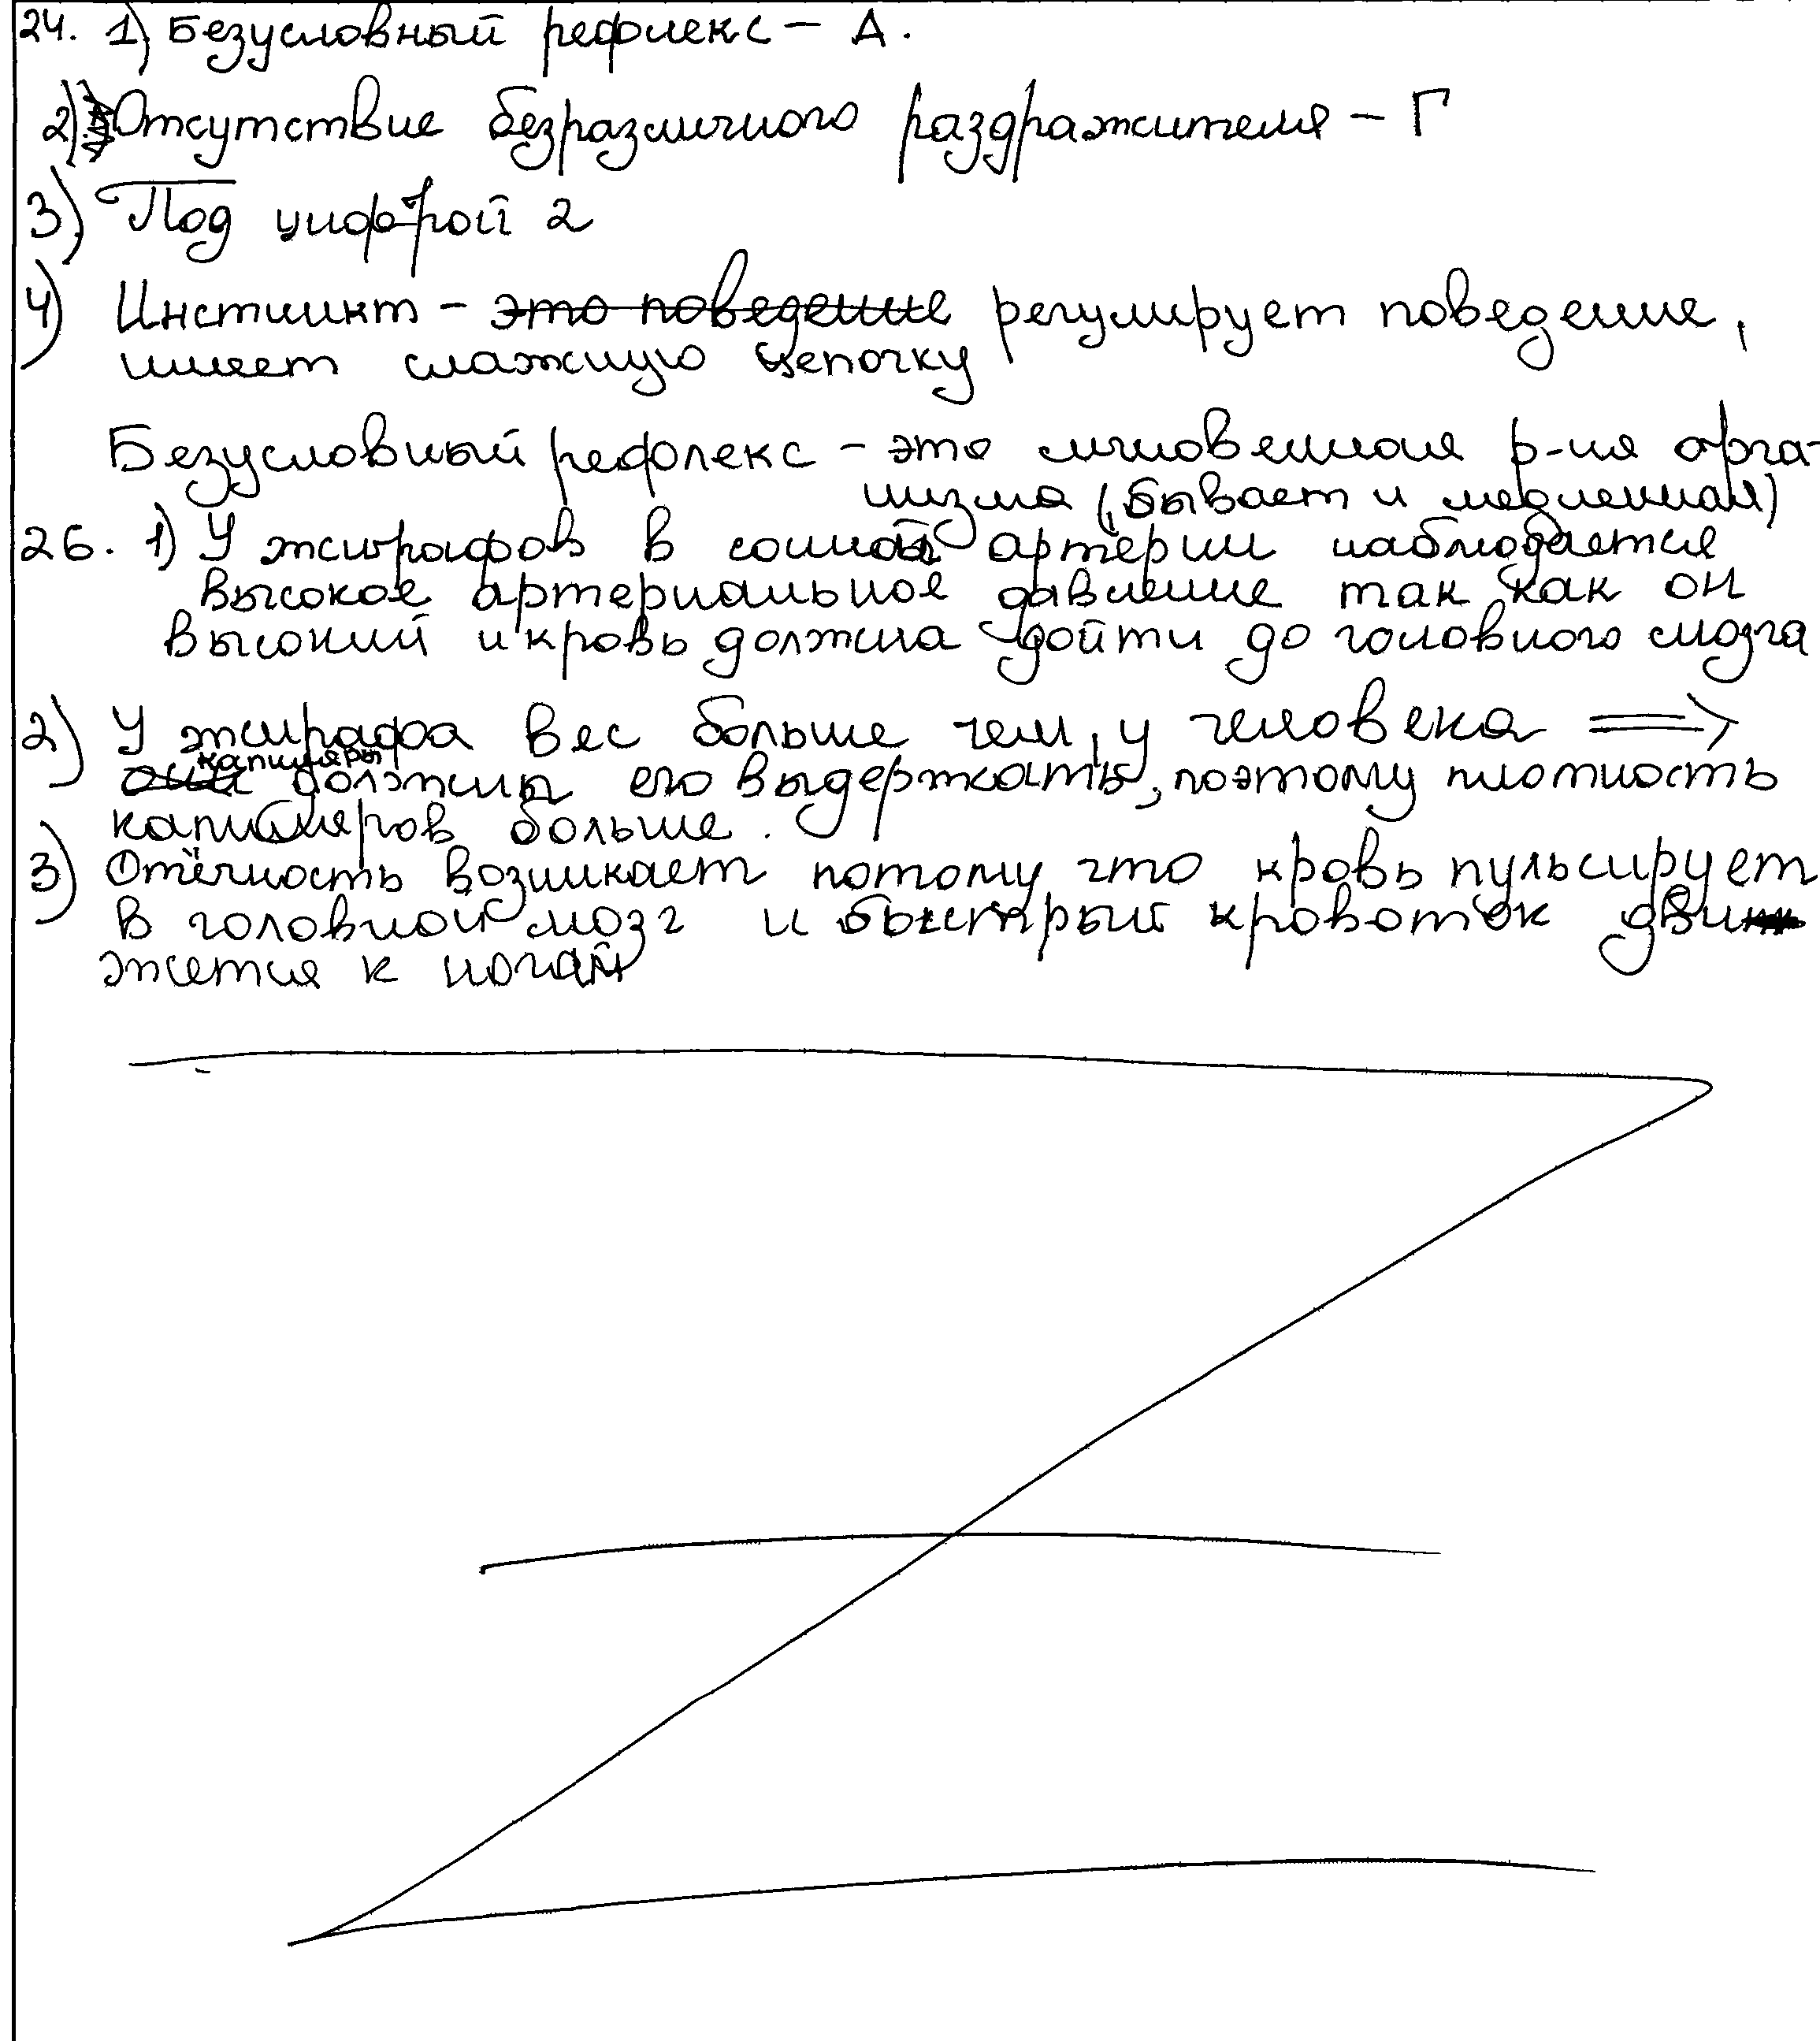 24. 1) Безусловный рефлекс – А.
2) Отсутствие безразличного раздражителя – Г
3) Под цифрой 2
4) Инстинкт – это поведение регулирует поведение,
имеет слажную цепочку
Безусловный рефлекс – это мгновенная р-ия орга-
низма (бывает и медленная)
26. 1) У жирафов в сонной артерии наблюдается
высокое артериальное давление так как он
высокий и кровь должна дойти до головного мозга
2) У жирафа вес больше чем, у человека ⟹
они капиляры должны его выдержать, поэтому плотность
капиляров больше.
3) Отёчность возникает потому что кровь пульсирует
в головной мозг и быстрый кровоток дви
жется к ногам